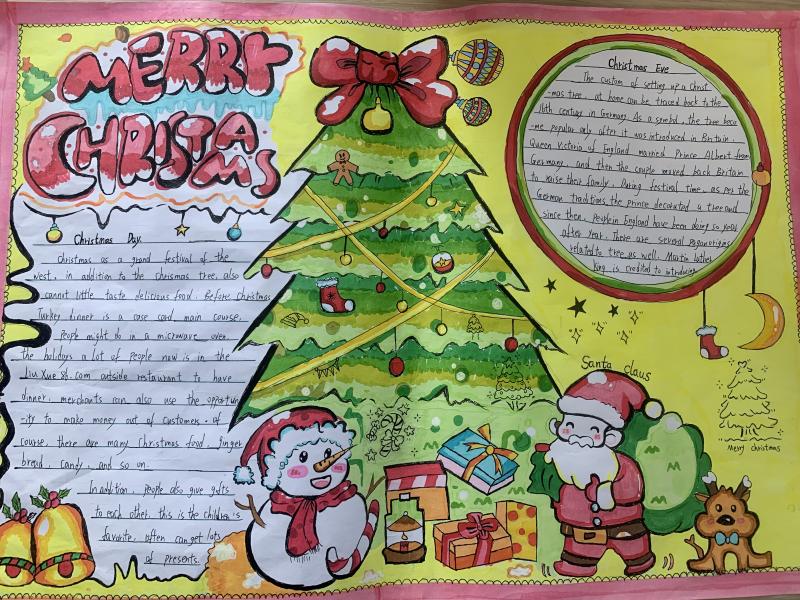 MERRY
CHRISTAMS
Christmas Day
Christmas as a grand festival of the
west, in addition to the chrismas tree, also
cannot little taste delicious food. Before Christmas
Turkey dinner is a case card main course.
People might do in a microwave oven.
the holidays a lot of people now is in the
Liu Xue 86.com outside restaurant to have
dinner, merchants can also use the opportun
-ity to make money out of customers. of
course, there are many christmas food, ginger
bread, candy, and so on.
In addition, people also give gifts
to each other. this is the children's
favorite, often can get lots
of presents.
Christmas Eve
The custom of setting up a Christ
-mas tree at home can be traced back to the
16th century in Germany. As a symbol, the tree beco
-me popular only after it was introduced in Britain.
Queen Victoria of England married Prince Albert from
Germany, and then the couple moved back Britain
to raise their family. During festival time, as per the
German traditions the prince decorated a tree and
since then, people in England have been doing so year
after year. There are several pagan origins
related to tree as well. Martin Luther
King is credited to introducing
Santa claus
Merry christmas